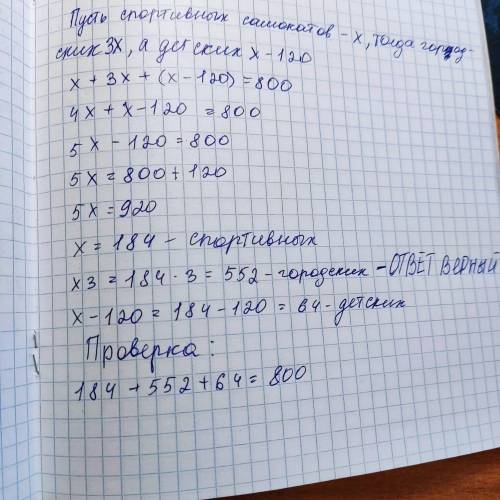 Пусть спортивных самокатов - x, тогда город-
ских 3x, а детских x - 120
x + 3x + (x - 120) = 800
4x + x - 120 = 800
5x - 120 = 800
5x = 800 + 120
5x = 920
x = 184 - спортивных
x3 = 184 · 3 = 552 - городских - ОТВЕТ ВЕРНЫЙ
x - 120 = 184 - 120 = 64 - детских
Проверка:
184 + 552 + 64 = 800